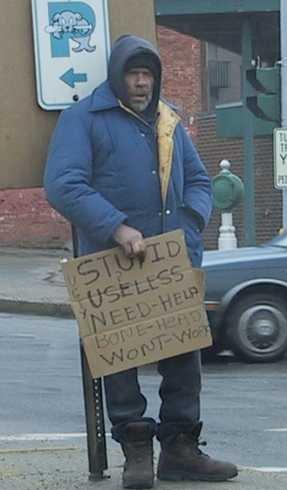 P
STUPID
USELESS
NEED-HELP
BONE-HEAD
WONT-WORK